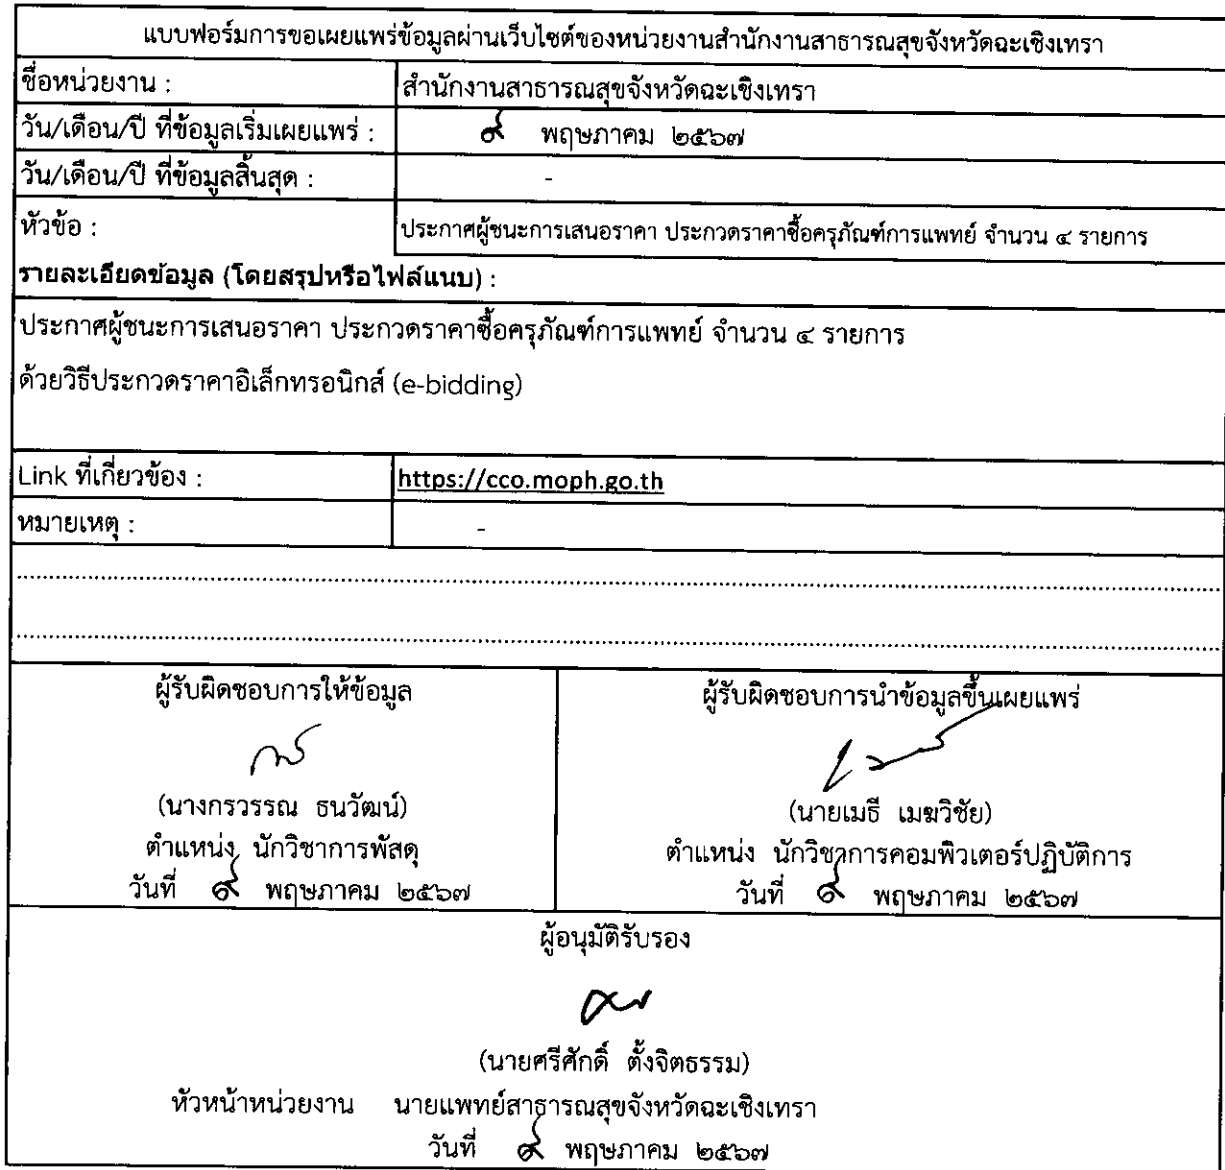 แบบฟอร์มการขอเผยแพร่ข้อมูลผ่านเว็บไซต์ของหน่วยงานสำนักงานสาธารณสุขจังหวัดฉะเชิงเทรา
ชื่อหน่วยงาน : สำนักงานสาธารณสุขจังหวัดฉะเชิงเทรา
วัน/เดือน/ปี ที่ข้อมูลเริ่มเผยแพร่ : ๙ พฤษภาคม ๒๕๖๗
วัน/เดือน/ปี ที่ข้อมูลสิ้นสุด : -
หัวข้อ : ประกาศผู้ชนะการเสนอราคา ประกวดราคาซื้อครุภัณฑ์การแพทย์ จำนวน ๔ รายการ
รายละเอียดข้อมูล (โดยสรุปหรือไฟล์แนบ) :
ประกาศผู้ชนะการเสนอราคา ประกวดราคาซื้อครุภัณฑ์การแพทย์ จำนวน ๔ รายการ
ด้วยวิธีประกวดราคาอิเล็กทรอนิกส์ (e-bidding)
Link ที่เกี่ยวข้อง : https://cco.moph.go.th
หมายเหตุ : -
ผู้รับผิดชอบการให้ข้อมูล
(นางกรวรรณ ธนวัฒน์)
ตำแหน่ง นักวิชาการพัสดุ
วันที่ ๙ พฤษภาคม ๒๕๖๗
ผู้รับผิดชอบการนำข้อมูลขึ้นเผยแพร่
(นายเมธี เมฆวิชัย)
ตำแหน่ง นักวิชาการคอมพิวเตอร์ปฏิบัติการ
วันที่ ๙ พฤษภาคม ๒๕๖๗
ผู้อนุมัติรับรอง
(นายศรีศักดิ์ ตั้งจิตธรรม)
หัวหน้าหน่วยงาน นายแพทย์สาธารณสุขจังหวัดฉะเชิงเทรา
วันที่ ๙ พฤษภาคม ๒๕๖๗